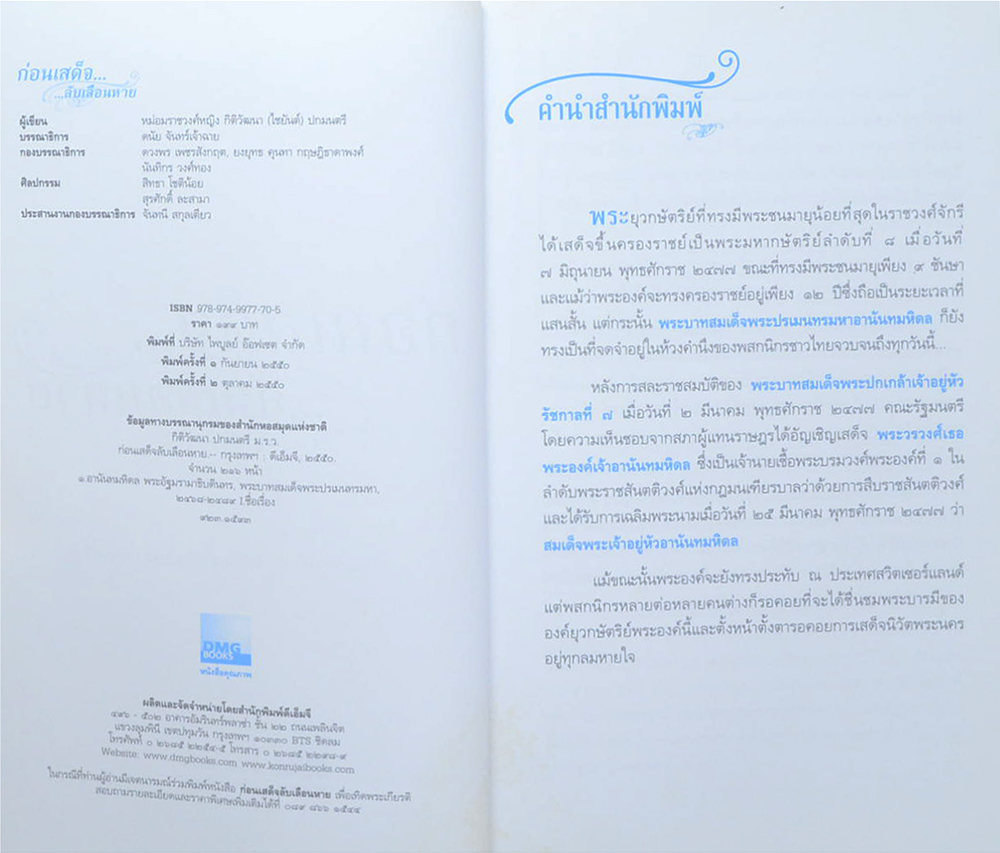 ก่อนเสด็จ...
...ลับเลือนหาย
ผู้เขียน หม่อมราชวงศ์หญิง กิติวัฒนา (ไชยันต์) ปกมนตรี
บรรณาธิการ ดนัย จันทร์เจ้าฉาย
กองบรรณาธิการ ดวงพร เพชรสังกฤต, ยงยุทธ คุนทา กฤษฎิธาดาพงศ์
นันทิกร วงศ์ทอง
ศิลปกรรม สิทธา โชติน้อย
สุรศักดิ์ ละสามา
ประสานงานกองบรรณาธิการ จันทนี สกุลเตียว
ISBN 978-974-9977-70-5
ราคา ๑๙๙ บาท
พิมพ์ที่ บริษัท ไพบูลย์ อ๊อฟเซต จำกัด
พิมพ์ครั้งที่ ๑ กันยายน ๒๕๕๐
พิมพ์ครั้งที่ ๒ ตุลาคม ๒๕๕๐
ข้อมูลทางบรรณานุกรมของสำนักหอสมุดแห่งชาติ
กิติวัฒนา ปกมนตรี ม.ร.ว.
ก่อนเสด็จลับเลือนหาย.-- กรุงเทพฯ : ดีเอ็มจี, ๒๕๕๐.
จำนวน ๒๑๖ หน้า
๑.อานันทมหิดล พระอัฐมรามาธิบดินทร, พระบาทสมเด็จพระปรเมนทรมหา,
๒๔๖๘-๒๔๘๙ I.ชื่อเรื่อง
๙๒๓.๑๕๙๓
DMG
BOOKS
หนังสือคุณภาพ
ผลิตและจัดจำหน่ายโดยสำนักพิมพ์ดีเอ็มจี
๔๙๖ - ๕๐๒ อาคารอัมรินทร์พลาซ่า ชั้น ๒๒ ถนนเพลินจิต
แขวงลุมพินี เขตปทุมวัน กรุงเทพฯ ๑๐๓๓๐ BTS ชิดลม
โทรศัพท์ ๐ ๒๖๘๕ ๒๒๕๔-๕ โทรสาร ๐ ๒๖๘๕ ๒๒๙๘-๙
Website: www.dmgbooks.com www.konrujaibooks.com
ในกรณีที่ท่านผู้อ่านมีเจตนารมณ์ร่วมพิมพ์หนังสือ ก่อนเสด็จลับเลือนหาย เพื่อเทิดพระเกียรติ
สอบถามรายละเอียดและราคาพิเศษเพิ่มเติมได้ที่ ๐๘๙ ๘๖๖ ๑๕๔๔
คำนำสำนักพิมพ์
พระยุวกษัตริย์ที่ทรงมีพระชนมายุน้อยที่สุดในราชวงศ์จักรี
ได้เสด็จขึ้นครองราชย์เป็นพระมหากษัตริย์ลำดับที่ ๘ เมื่อวันที่
๗ มิถุนายน พุทธศักราช ๒๔๗๗ ขณะที่ทรงมีพระชนมายุเพียง ๙ ชันษา
และแม้ว่าพระองค์จะทรงครองราชย์อยู่เพียง ๑๒ ปีซึ่งถือเป็นระยะเวลาที่
แสนสั้น แต่กระนั้น พระบาทสมเด็จพระปรเมนทรมหาอานันทมหิดล ก็ยัง
ทรงเป็นที่จดจำอยู่ในห้วงคำนึงของพสกนิกรชาวไทยจวบจนถึงทุกวันนี้...
หลังการสละราชสมบัติของ พระบาทสมเด็จพระปกเกล้าเจ้าอยู่หัว
รัชกาลที่ ๗ เมื่อวันที่ ๒ มีนาคม พุทธศักราช ๒๔๗๗ คณะรัฐมนตรี
โดยความเห็นชอบจากสภาผู้แทนราษฎรได้อัญเชิญเสด็จ พระวรวงศ์เธอ
พระองค์เจ้าอานันทมหิดล ซึ่งเป็นเจ้านายเชื้อพระบรมวงศ์พระองค์ที่ ๑ ใน
ลำดับพระราชสันตติวงศ์แห่งกฎมนเฑียรบาลว่าด้วยการสืบราชสันตติวงศ์
และได้รับการเฉลิมพระนามเมื่อวันที่ ๒๕ มีนาคม พุทธศักราช ๒๔๗๗ ว่า
สมเด็จพระเจ้าอยู่หัวอานันทมหิดล
แม้ขณะนั้นพระองค์จะยังทรงประทับ ณ ประเทศสวิตเซอร์แลนด์
แต่พสกนิกรหลายต่อหลายคนต่างก็รอคอยที่จะได้ชื่นชมพระบารมีของ
องค์ยุวกษัตริย์พระองค์นี้และตั้งหน้าตั้งตารอคอยการเสด็จนิวัตพระนคร
อยู่ทุกลมหายใจ